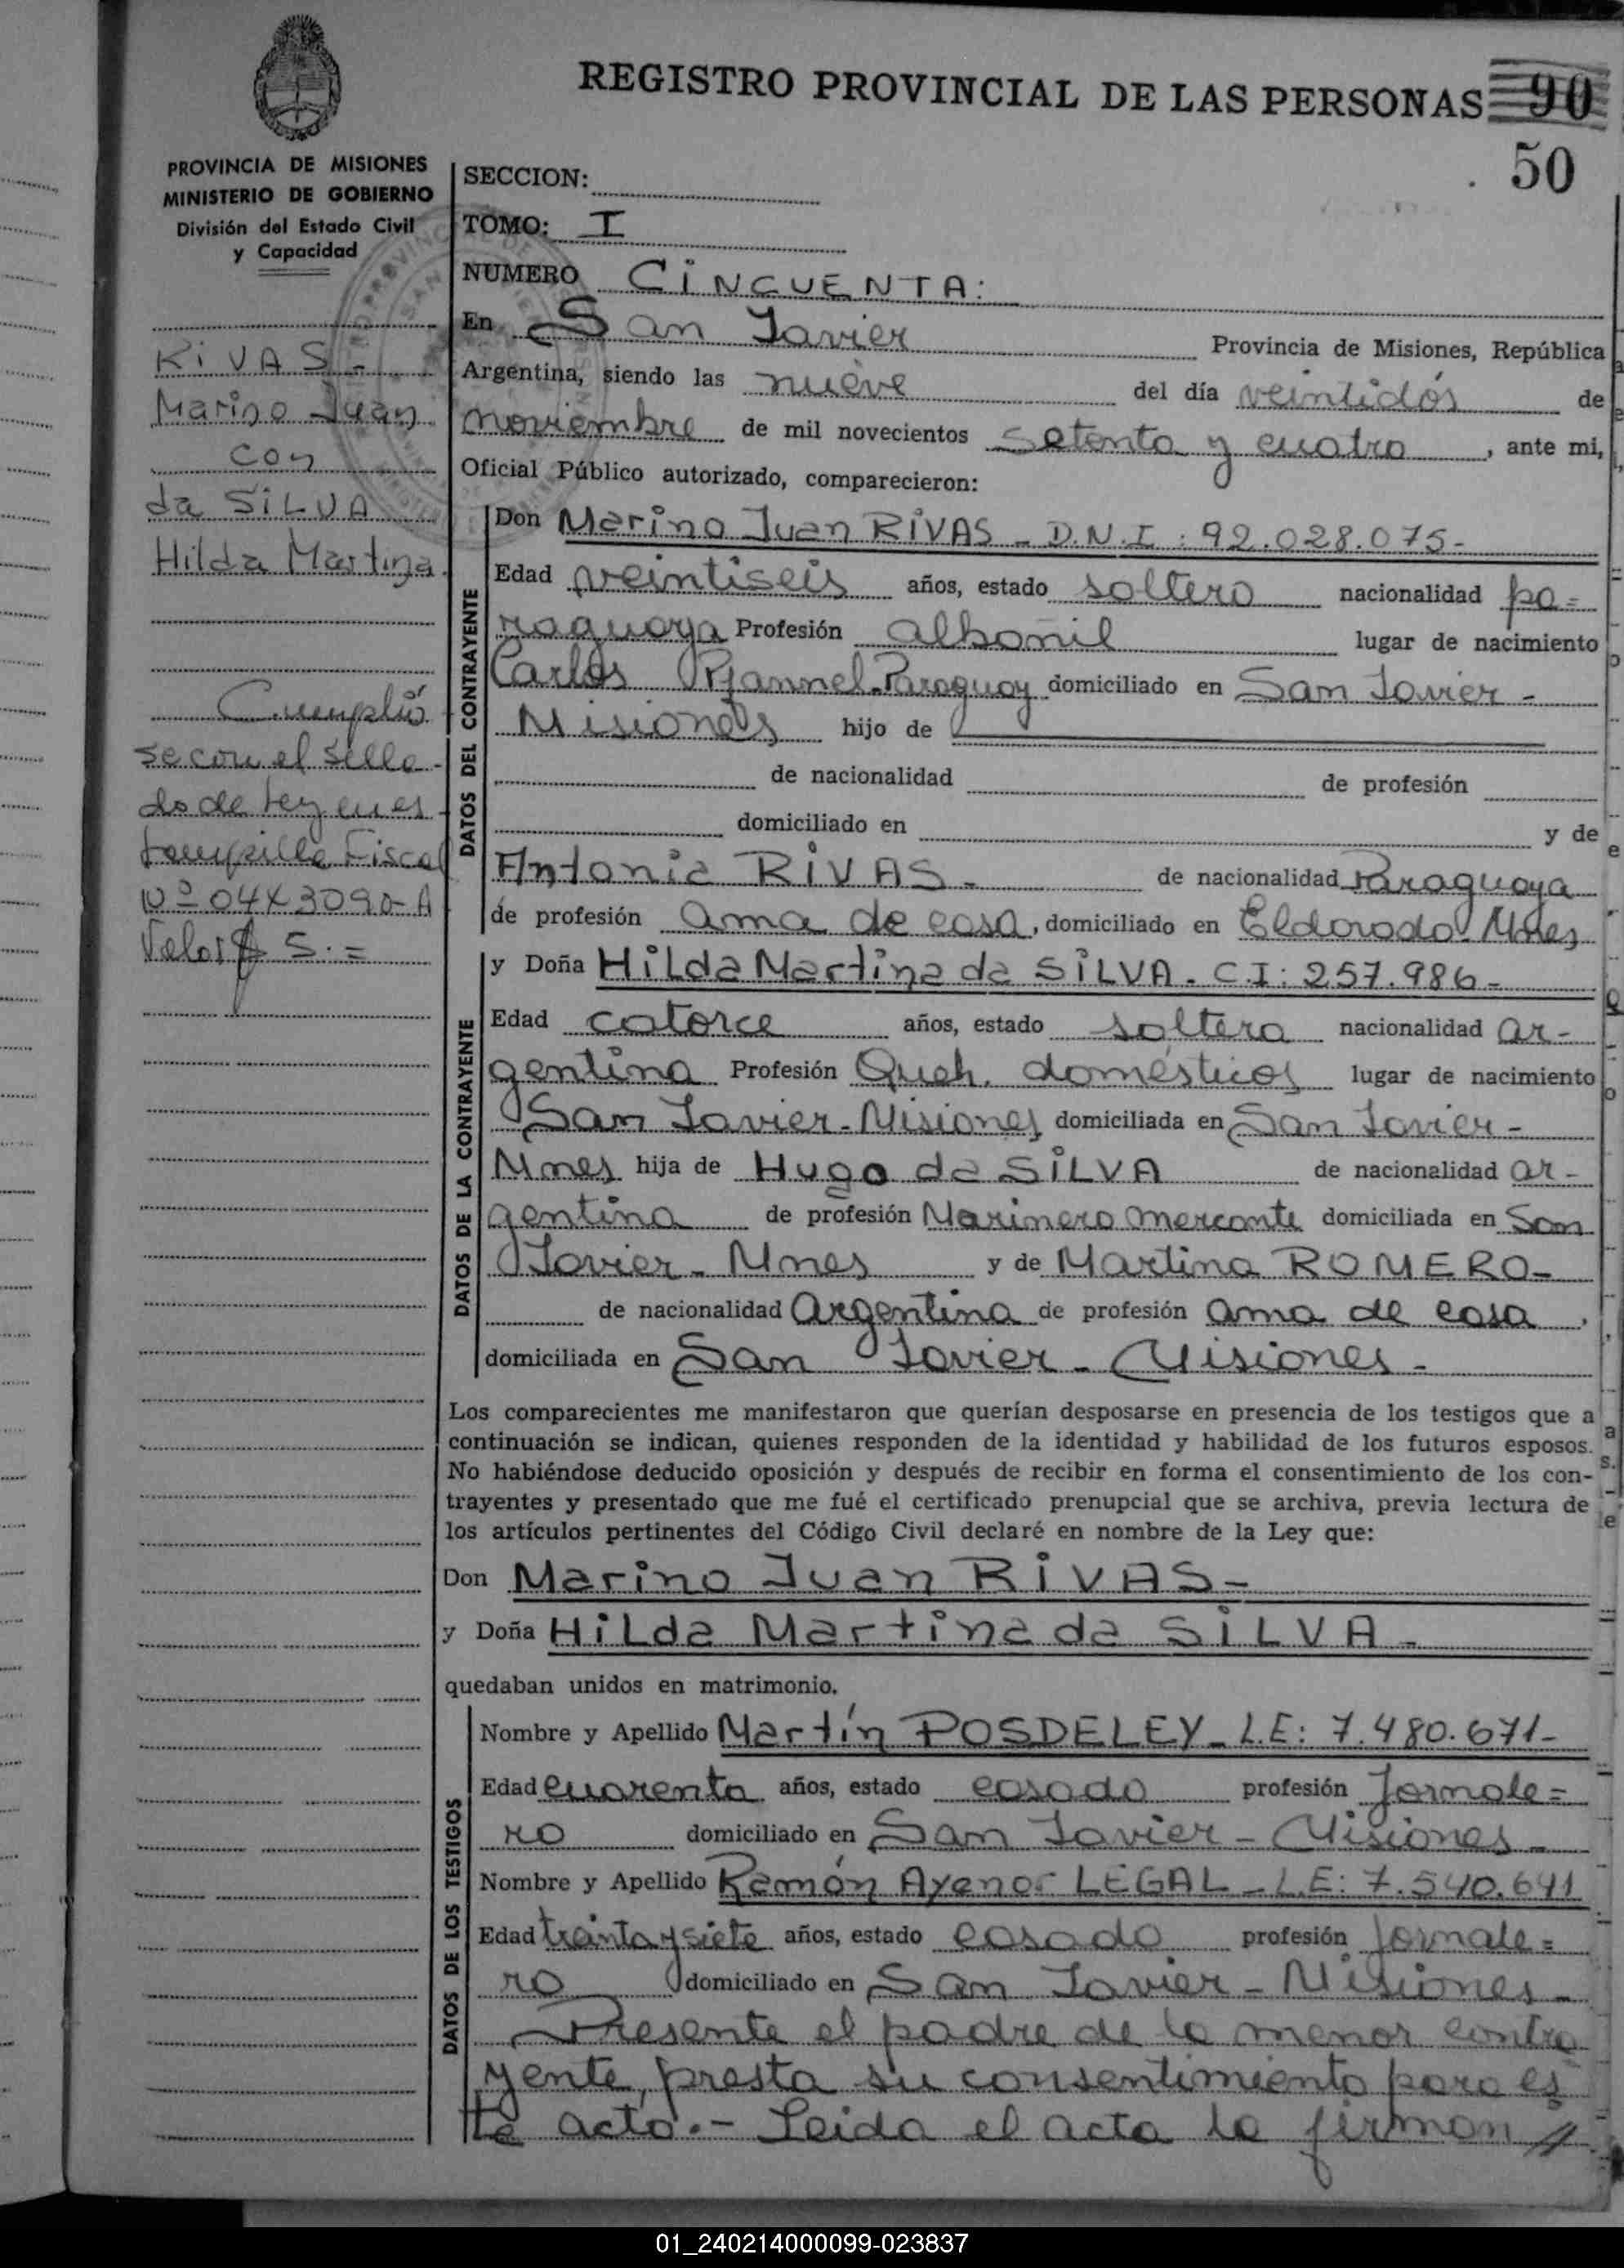 REGISTRO PROVINCIAL DE LAS PERSONAS 90
50
PROVINCIA DE MISIONES
MINISTERIO DE GOBIERNO
División del Estado Civil
y Capacidad
RiVAS -
Marino Juan
con
da SiLVA
Hilda Martina
Cumplió
se con el sella-
do de Ley en es
tampilla Fiscal
Nº 04X3090-A
Valor $ 5.=
SECCION:
TOMO: I
NUMERO CiNCUENTA:
En San Javier Provincia de Misiones, República
Argentina, siendo las nueve del día veintidós de
noviembre de mil novecientos setenta y cuatro, ante mi,
Oficial Público autorizado, comparecieron:
DATOS DEL CONTRAYENTE
Don Marino Juan RiVAS - D.N.I: 92.028.075-
Edad veintiseis años, estado soltero nacionalidad pa=
raguaya Profesión albañil lugar de nacimiento
Carlos Pfannel-Paraguay domiciliado en San Javier -
Misiones hijo de
de nacionalidad de profesión
domiciliado en y de
Antonia RiVAS - de nacionalidad Paraguaya
de profesión ama de casa, domiciliado en Eldorado-Mnes
DATOS DE LA CONTRAYENTE
y Doña HiLda Martina da SiLVA - C.I: 257.986-
Edad catorce años, estado soltera nacionalidad ar-
gentina Profesión Queh. domésticos lugar de nacimiento
San Javier-Misiones domiciliada en San Javier -
Mnes hija de Hugo da SiLVA de nacionalidad ar-
gentina de profesión Marinero mercante domiciliada en San
Javier - Mnes y de Martina ROMERO-
de nacionalidad Argentina de profesión ama de casa,
domiciliada en San Javier - Misiones -
Los comparecientes me manifestaron que querían desposarse en presencia de los testigos que a
continuación se indican, quienes responden de la identidad y habilidad de los futuros esposos.
No habiéndose deducido oposición y después de recibir en forma el consentimiento de los con-
trayentes y presentado que me fué el certificado prenupcial que se archiva, previa lectura de
los artículos pertinentes del Código Civil declaré en nombre de la Ley que:
Don Marino Juan RiVAS-
y Doña HiLda Martina da SiLVA -
quedaban unidos en matrimonio.
DATOS DE LOS TESTIGOS
Nombre y Apellido Martín POSDELEY - L.E: 7.480.671-
Edad cuarenta años, estado casado profesión Jornale=
ro domiciliado en San Javier - Misiones -
Nombre y Apellido Ramón Ayenor LEGAL - L.E: 7.540.641
Edad treinta y siete años, estado casado profesión Jornale=
ro domiciliado en San Javier - Misiones -
Presente el padre de la menor contra
yente, presta su consentimiento para es
te acto.- Leida el acta la firman //
01_240214000099-023837